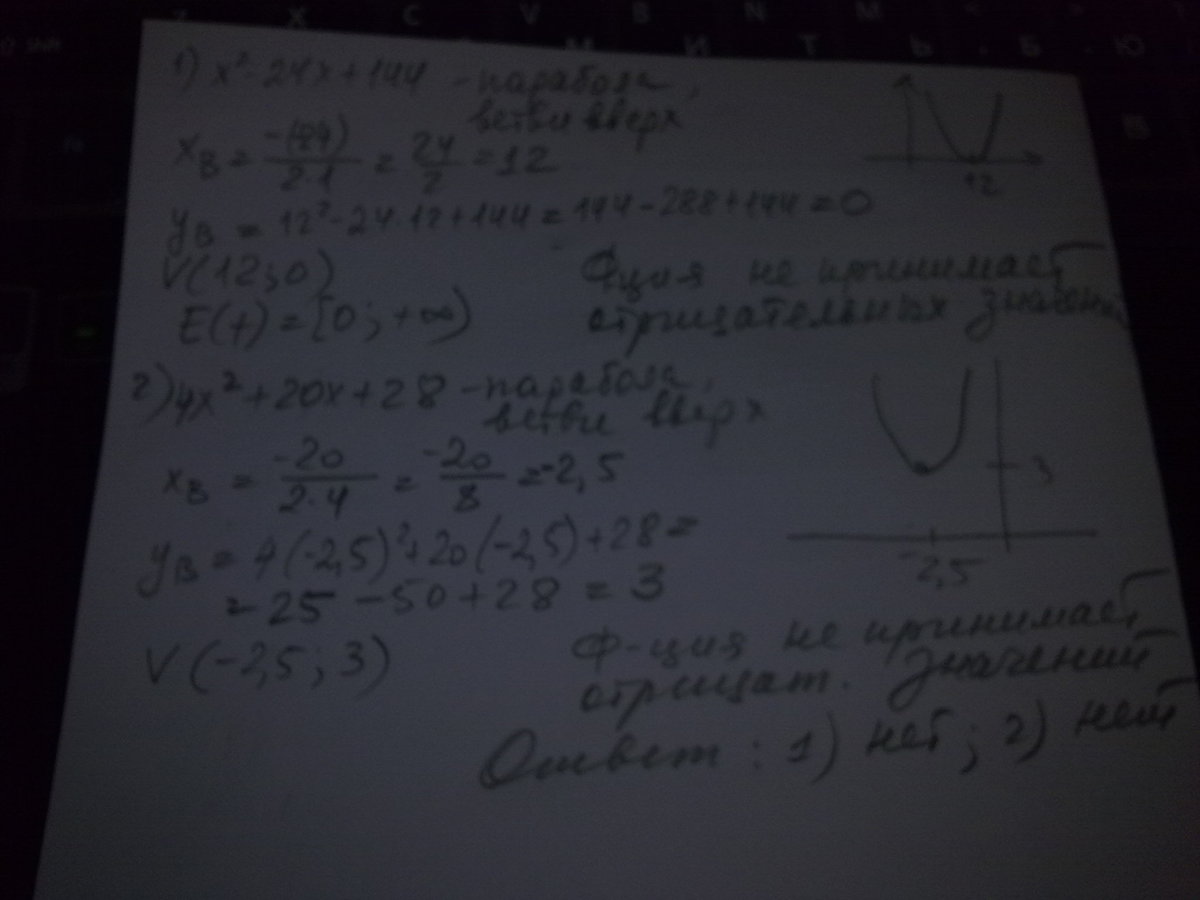 X C V B N M
М И Т Ь . Б . Ю
1) x² - 24x + 144 - парабола,
ветви вверх
xв = -(24)/2·1 = 24/2 = 12
12
yв = 12² - 24·12 + 144 = 144 - 288 + 144 = 0
V(12;0)
Ф-ция не принимает
E(f) = [0; +∞)
отрицательных значений
2) 4x² + 20x + 28 - парабола,
ветви вверх
xв = -20/2·4 = -20/8 = -2,5
3
yв = 4(-2,5)² + 20(-2,5) + 28 =
-2,5
= 25 - 50 + 28 = 3
V(-2,5; 3)
Ф-ция не принимает
отрицат. значений
Ответ: 1) нет; 2) нет